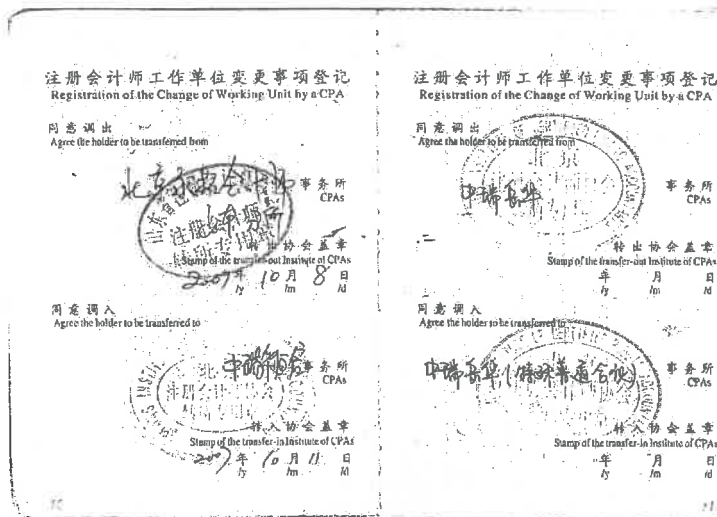 注册会计师工作单位变更事项登记
Registration of the Change of Working Unit by a CPA
同意调出
Agree the holder to be transferred from
北京
事务所
CPAs
注册会计师
转出协会盖章
Stamp of the transfer-out Institute of CPAs
2007年 10月 8日
/y /m /d
同意调入
Agree the holder to be transferred to
中瑞
事务所
CPAs
转入协会盖章
Stamp of the transfer-in Institute of CPAs
2007年 10月 11日
/y /m /d
10
注册会计师工作单位变更事项登记
Registration of the Change of Working Unit by a CPA
同意调出
Agree the holder to be transferred from
北京
中瑞岳华
事务所
CPAs
转出协会盖章
Stamp of the transfer-out Institute of CPAs
年 月 日
/y /m /d
同意调入
Agree the holder to be transferred to
中瑞岳华(特殊普通合伙)
事务所
CPAs
转入协会盖章
Stamp of the transfer-in Institute of CPAs
年 月 日
/y /m /d
11